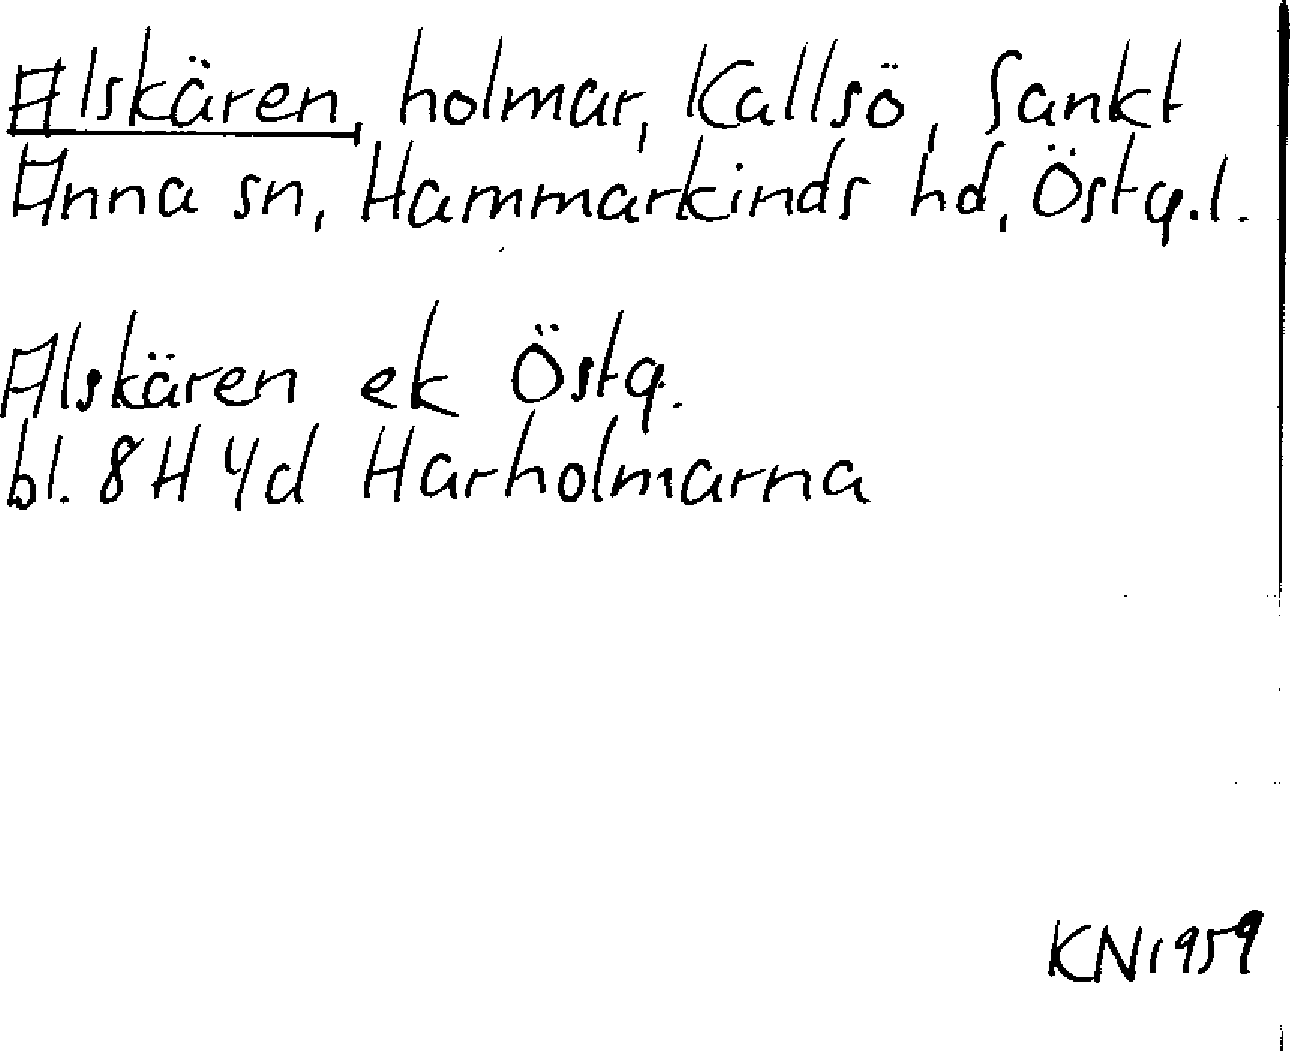 Alskären, holmar, Kallsö, Sankt
Anna sn, Hammarkinds hd, Östg.l.
Alskären ek Östg.
bl. 8H 4d Harholmarna
KN 1959